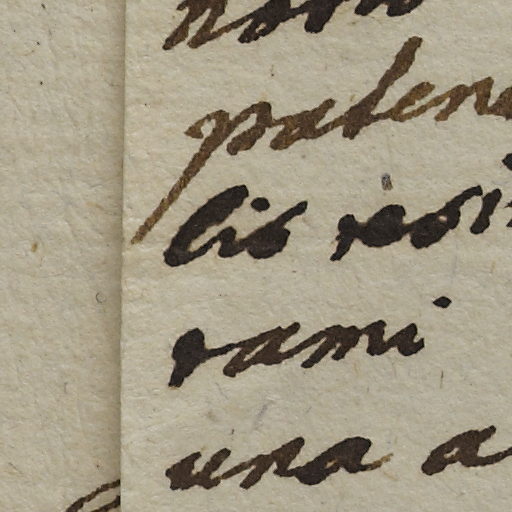 palen
lis resi
rami
una a